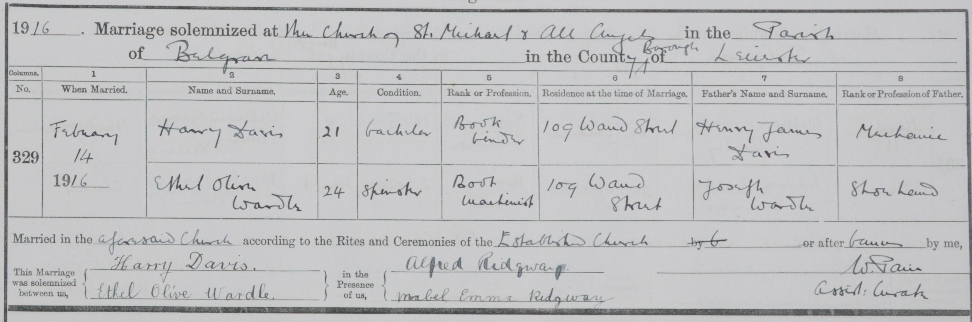 1916. Marriage solemnized at the Church of St. Michael & All Angels in the Parish
of Belgrave in the County Borough of Leicester
Columns. 1 2 3 4 5 6 7 8
No. When Married. Name and Surname. Age. Condition. Rank or Profession. Residence at the time of Marriage. Father's Name and Surname. Rank or Profession of Father.
329 February 14 1916 Harry Davis 21 bachelor Book binder 109 Wand Street Henry James Davis Mechanic
Ethel Olive Wardle 24 Spinster Boot Machinist 109 Wand Street Joseph Wardle Shoe hand
Married in the aforesaid Church according to the Rites and Ceremonies of the Established Church by or after banns by me,
This Marriage was solemnized between us, Harry Davis. Ethel Olive Wardle. in the Presence of us, Alfred Ridgway Mabel Emma Ridgway
W. Pain
Assist: Curate